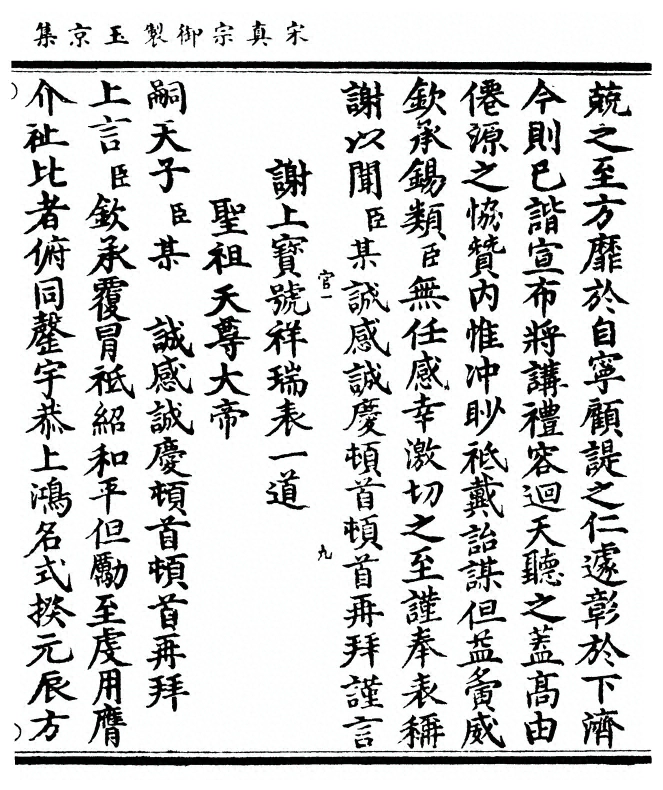 宋真宗御製玉京集
兢之至方靡於自寧顧諟之仁遽彰於下濟
今則已諧宣布將講禮容迴天聽之蓋高由
僊源之恊贊内惟冲眇祗戴詒謀但益夤威
欽承錫類臣無任感幸激切之至謹奉表稱
謝以聞臣某誠感誠慶頓首頓首再拜謹言
官一
九
謝上寶號祥瑞表一道
聖祖天尊大帝
嗣天子臣某誠感誠慶頓首頓首再拜
上言臣欽承覆冒祗紹和平但勵至虔用膺
介祉比者俯同罄宇恭上鴻名式揆元辰方